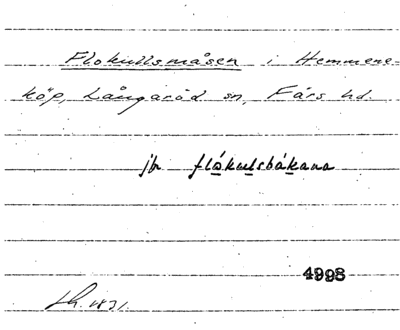 Flokullsmåsen i Hemmene-
köp, Långaröd sn, Färs hd.
jfr flókulsbákana
4998